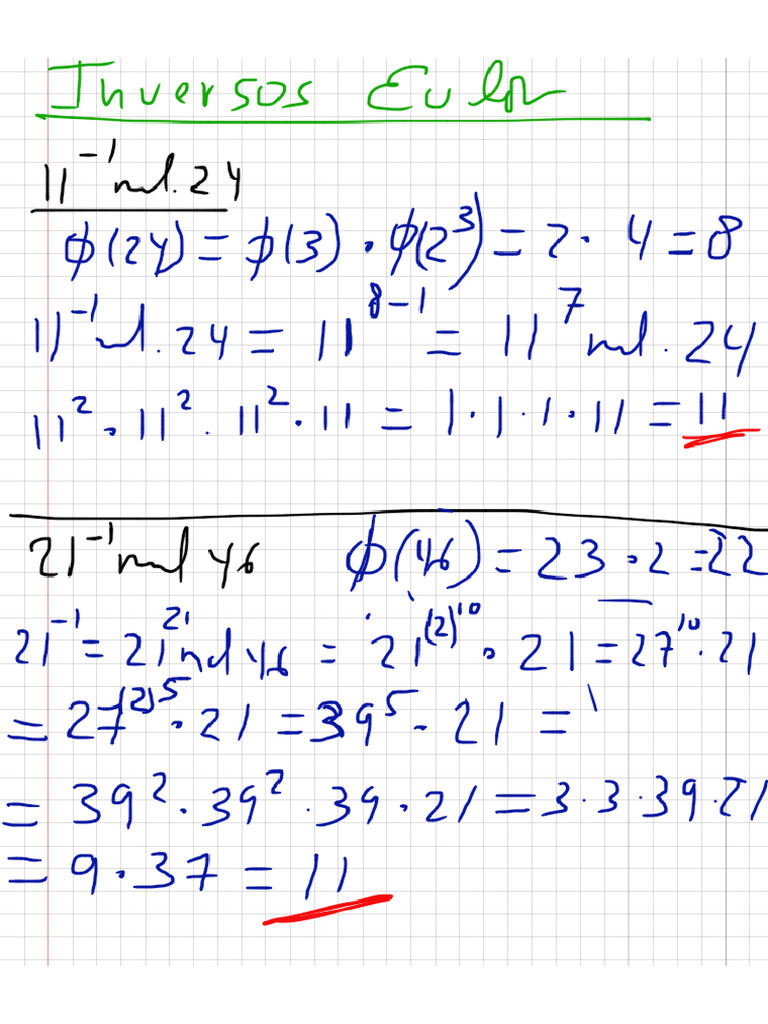 Inversos Euler
11⁻¹ md. 24
ϕ(24) = ϕ(3) · ϕ(2³) = 2 · 4 = 8
11⁻¹ md. 24 = 11⁸⁻¹ = 11⁷ md. 24
11² · 11² · 11² · 11 = 1 · 1 · 1 · 11 = 11
21⁻¹ md 46 ϕ(46) = 23 · 2 = 22
21⁻¹ = 21²¹ md 46 = 21⁽²⁾¹⁰ · 21 = 27¹⁰ · 21
= 27⁽²⁾⁵ · 21 = 39⁵ · 21 =
= 39² · 39² · 39 · 21 = 3 · 3 · 39 · 21
= 9 · 37 = 11